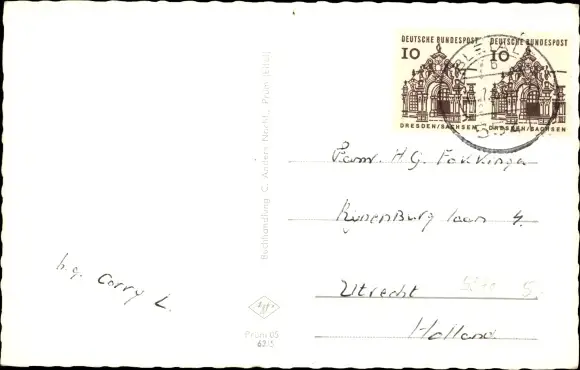 DEUTSCHE BUNDESPOST
10
DRESDEN/SACHSEN
DEUTSCHE BUNDESPOST
10
DRESDEN/SACHSEN
Fam. H G Fokkinga
Rijnenburg laan 4.
Utrecht
Holland
h.g. Corry L.
Buchhandlung C. Anders Nachf., Prüm (Eifel)
Agfa
Prüm 05